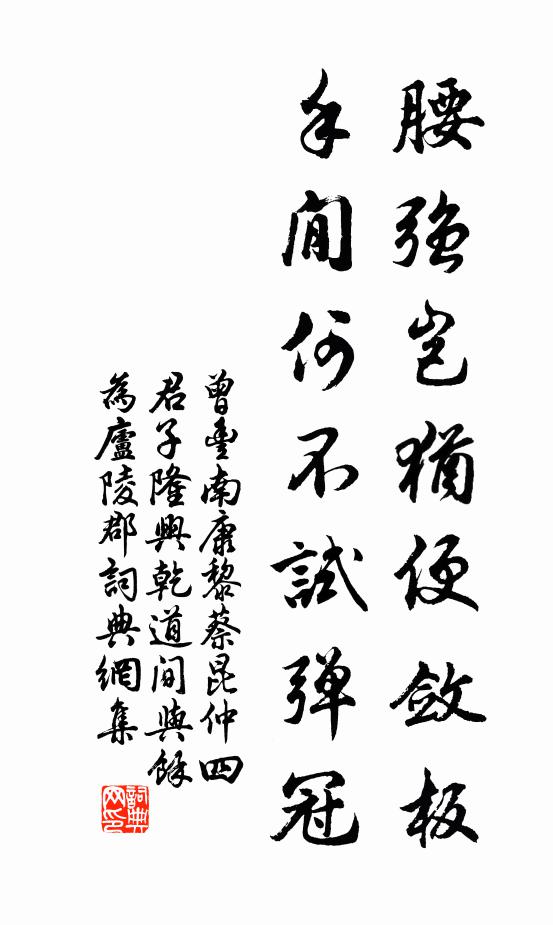 腰強豈猶便斂板
手閒何不試弹冠
曾豐南康黎蔡昆仲四
君子隆興乾道間與餘
為廬陵郡詞典網集
詞典网印